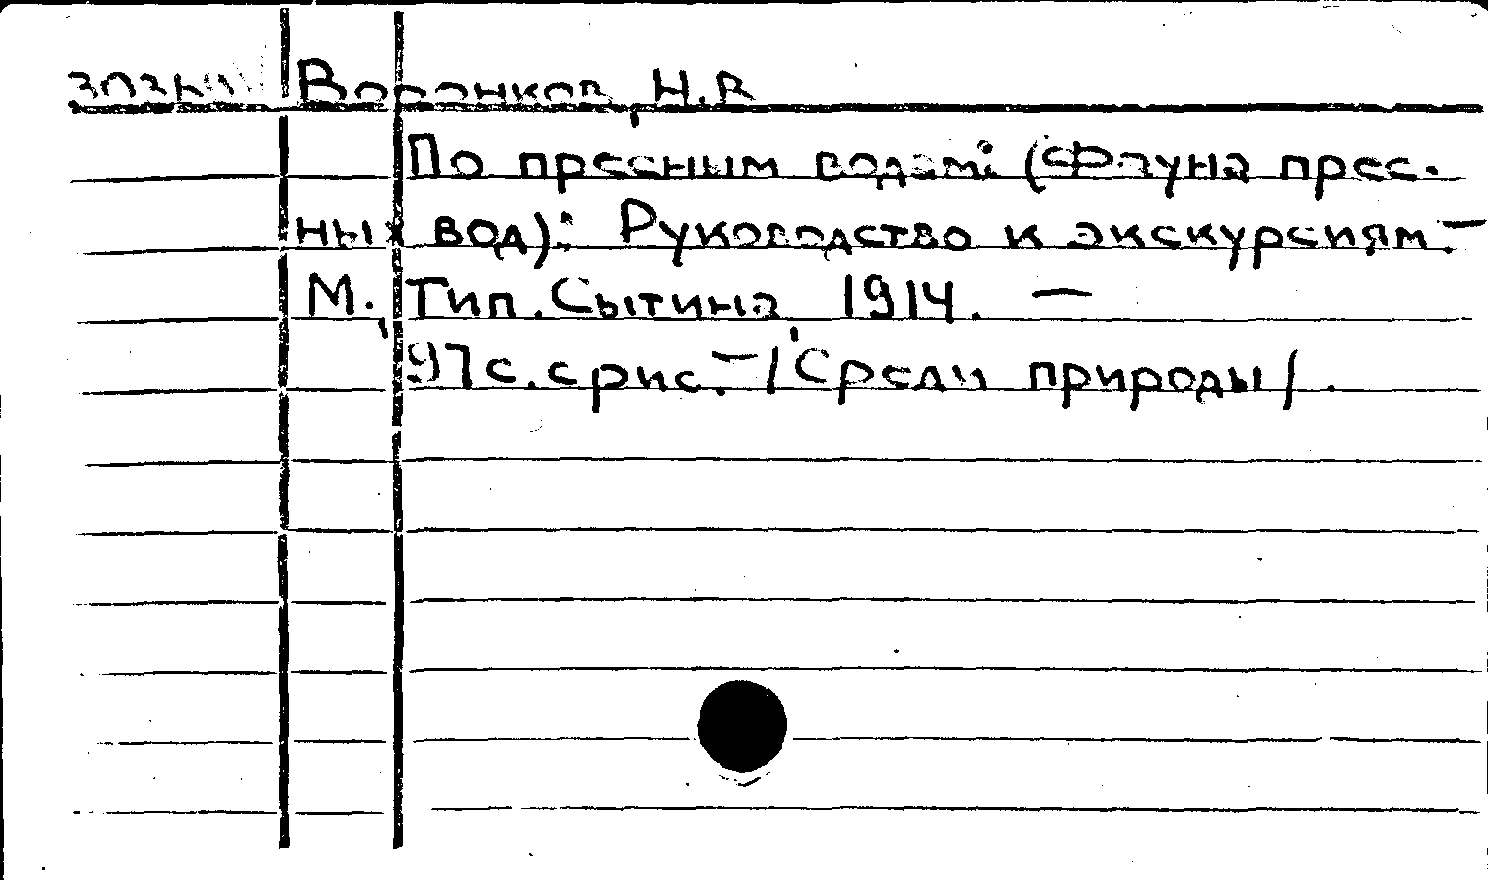 Воронков, Н.В
По пресным водам: (Фауна прес-
ных вод): Руководство к экскурсиям. —
М., Тип. Сытина, 1914. —
97с. с рис. — /Среди природы/.